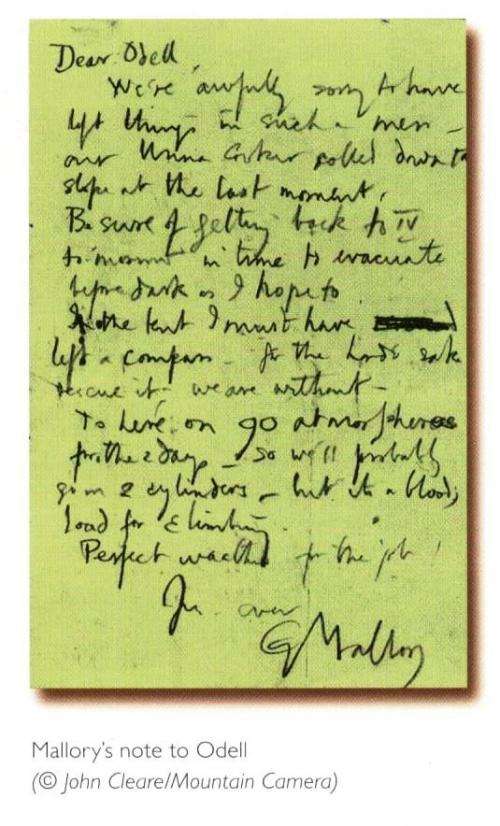 Dear Odell,
We're awfully sorry to have
left things in such a mess –
our Unna Cooker rolled down the
slope at the last moment.
Be sure of getting back to IV
to-morrow in time to evacuate
before dark as I hope to.
In the tent I must have
left a compass – for the Lord's sake
rescue it, we are without –
To here on 90 atmospheres
for the 2 days – so we'll probably
go on 2 cylinders – but it's a bloody
load for climbing.
Perfect weather for the job!
Yrs ever
G Mallory
Mallory's note to Odell
(© John Cleare/Mountain Camera)